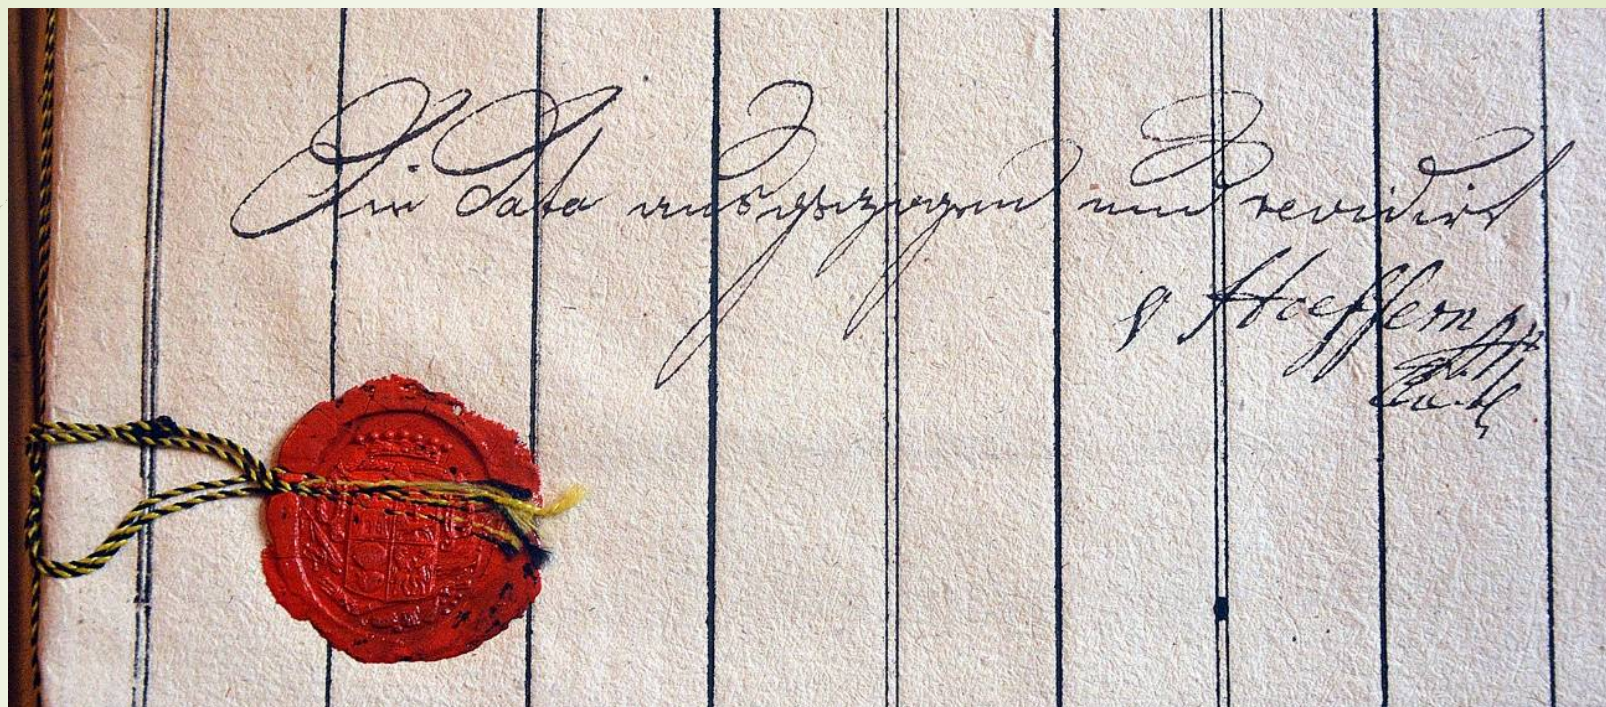 Die Data ausgezogen und revidirt
v Hoeffern